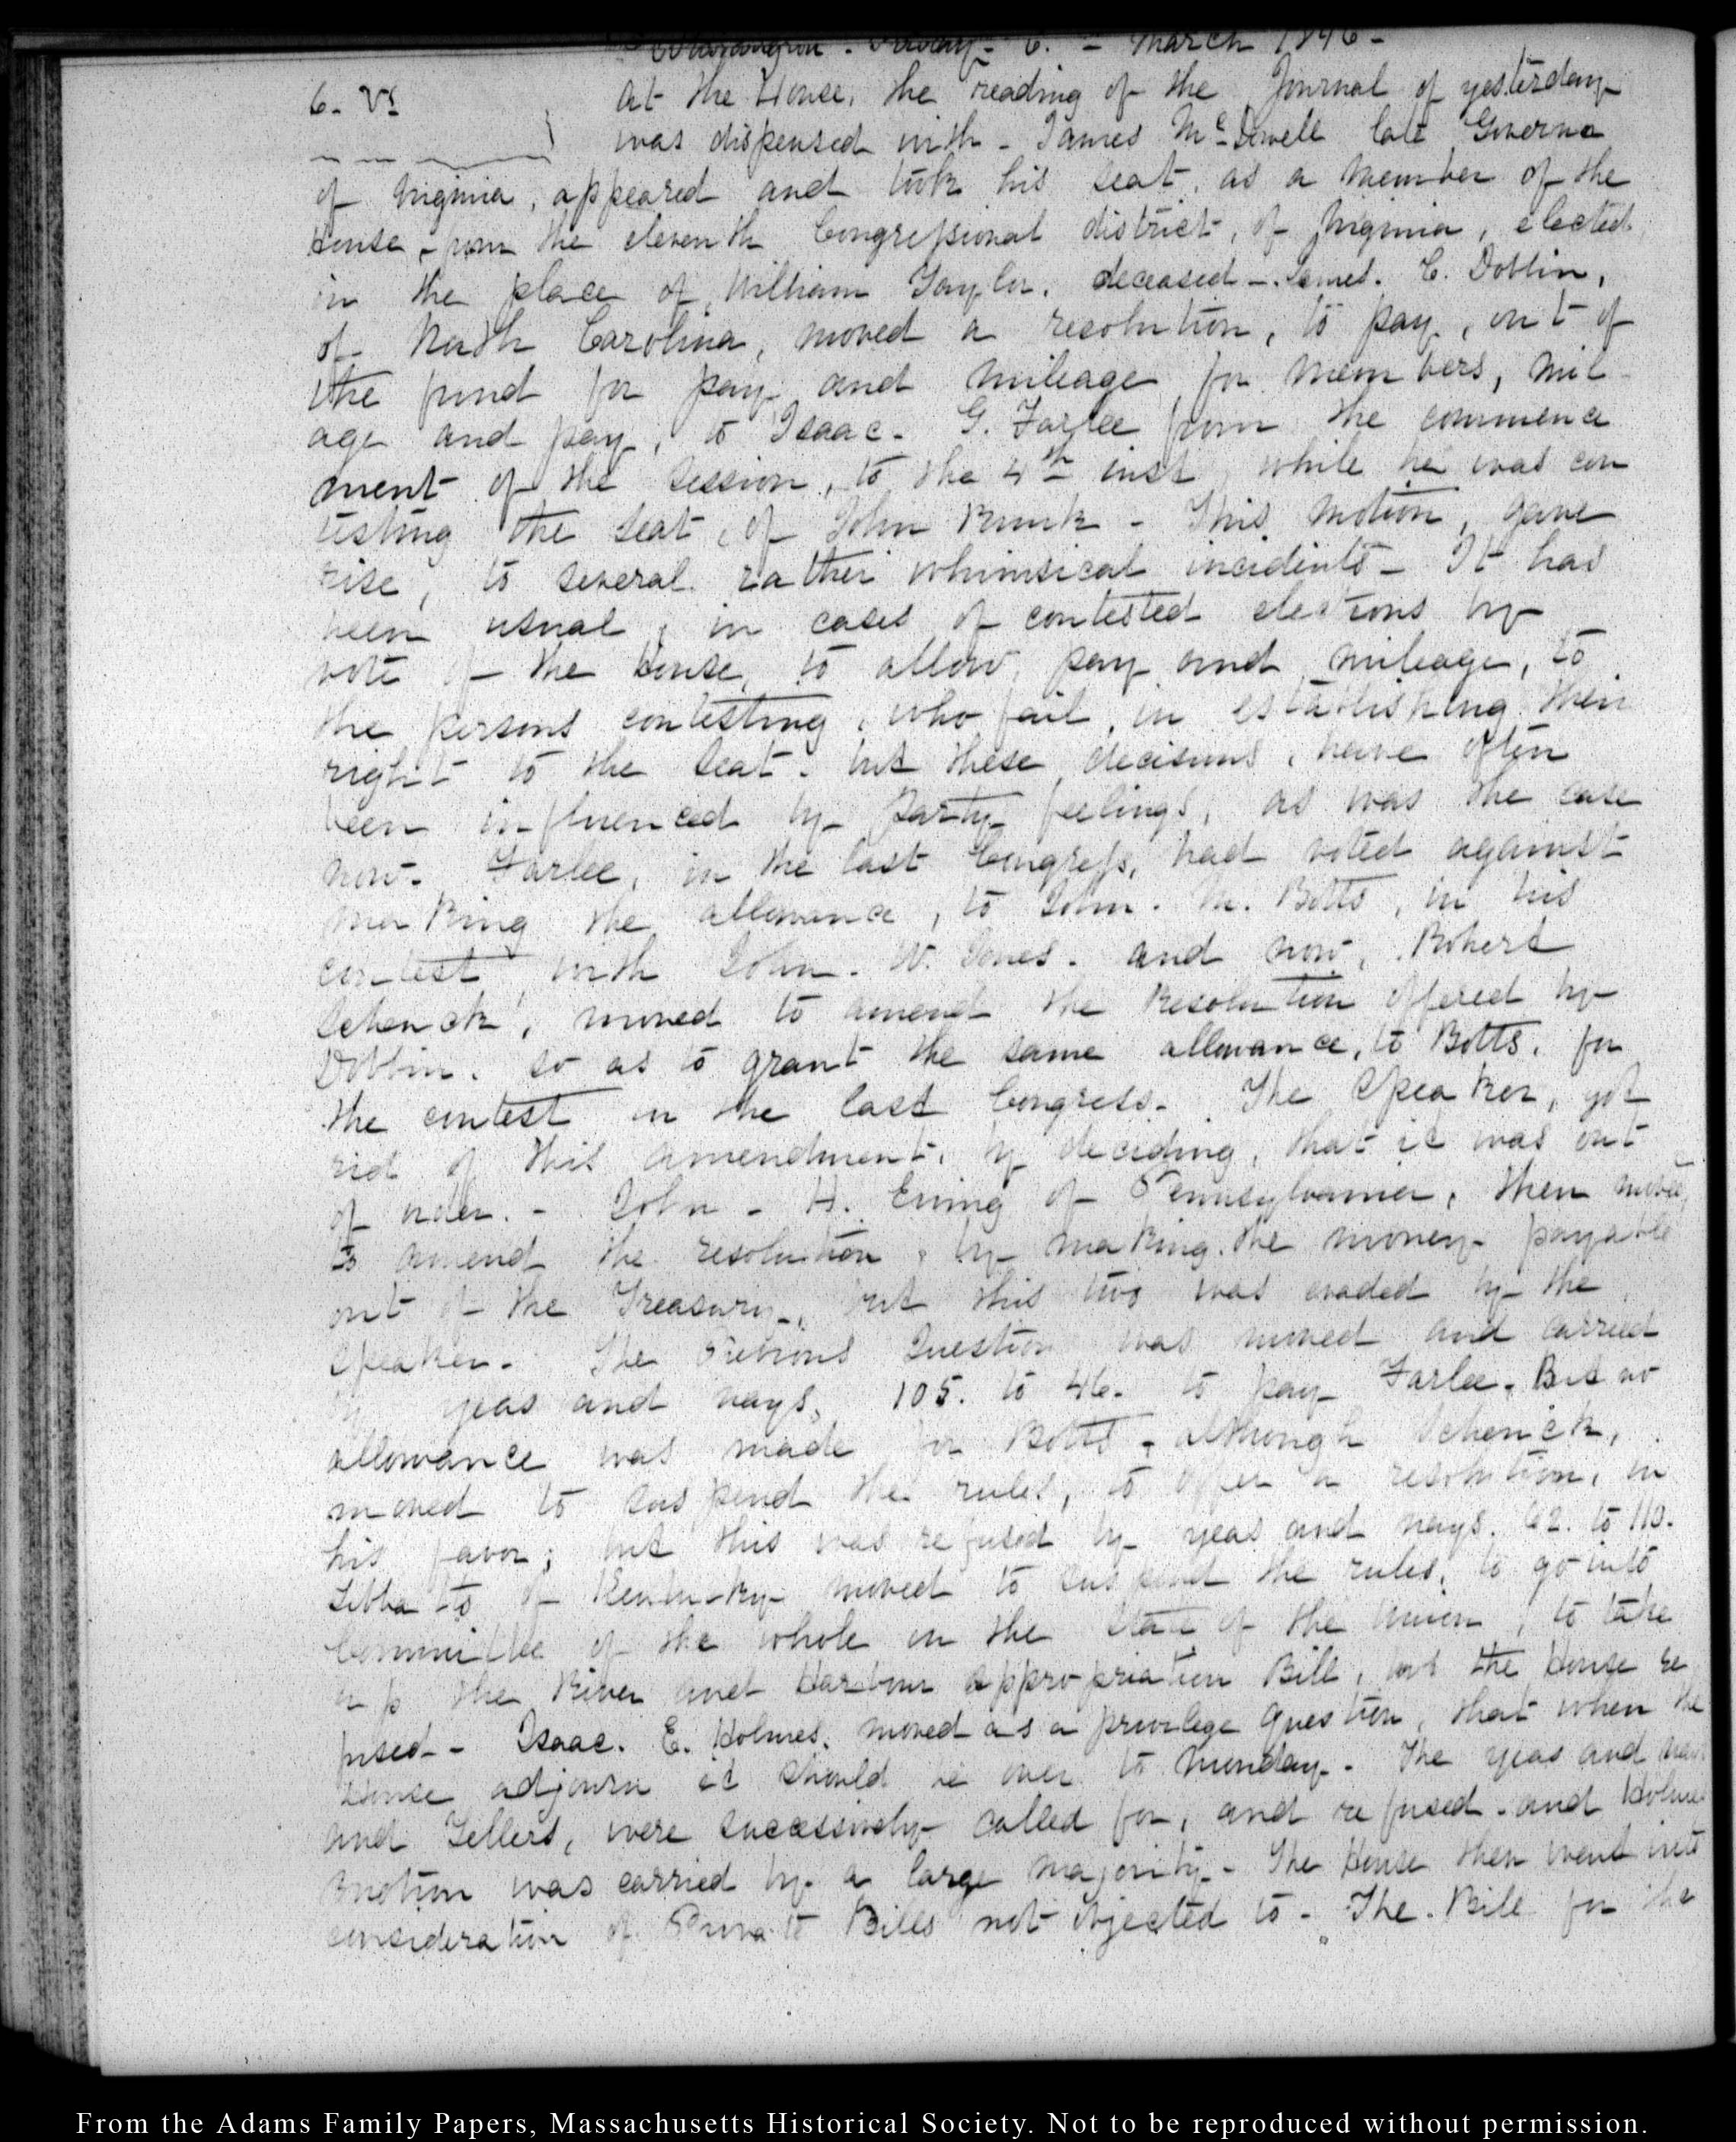 Washington. Friday- 6. - March 1846-
6. VI
At the House, the reading of the Journal of yesterday
was dispensed with - James McDowell late Governor
of Virginia, appeared and took his seat, as a member of the
House, from the eleventh Congressional district, of Virginia, elected
in the place of William Taylor. deceased - James. C. Dobbin,
of North Carolina, moved a resolution, to pay, out of
the fund for pay and mileage for members, mile
age and pay, to Isaac. G. Farlee from the commence
ment of the Session, to the 4th inst while he was con
testing the seat, of John Runk - This motion, gave
rise, to several rather whimsical incidents - It has
been usual, in cases of contested elections by
vote of the House, to allow, pay and mileage, to
the persons contesting, who fail, in establishing their
right to the seat. but these decisions, have often
been influenced by party feelings, as was the case
now. Farlee, in the last Congress, had voted against
making the allowance, to John. M. Botts, in his
contest with John. W. Jones. and now, Robert
Schenck, moved to amend the Resolution offered by
Dobbin. so as to grant the same allowance, to Botts. for
the contest in the last Congress. The Speaker, got
rid of this amendment, by deciding, that it was out
of order. - John - H. Ewing of Pennsylvania, then moved
to amend the resolution, by making the money payable
out of the Treasury, but this too was evaded by the
Speaker. The Previous Question was moved and carried
by yeas and nays, 105. to 46. to pay Farlee. But no
allowance was made for Botts - although Schenck,
moved to suspend the rules, to offer a resolution, in
his favor; but this was refused by yeas and nays. 62. to 110.
Tibbatts of Kentucky moved to suspend the rules, to go into
Committee of the whole on the State of the Union, to take
up the River and Harbour appropriation Bill, but the House re
fused - Isaac. E. Holmes, moved as a privilege question, that when the
House adjourn it should be over to Monday. The yeas and nays
and Tellers, were successively called for, and refused. and Holmes
motion was carried by a large majority - The House then went into
consideration of Private Bills not objected to - The Bill for the
From the Adams Family Papers, Massachusetts Historical Society. Not to be reproduced without permission.